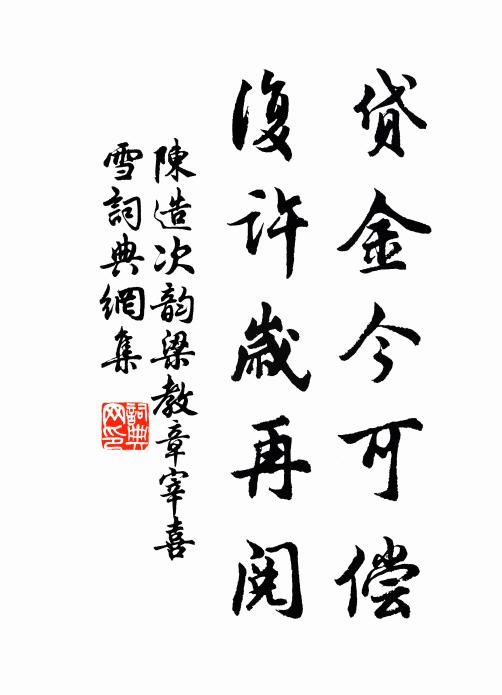 贷金今可偿
復许歲再阅
陳造次韵梁教章宰喜
雪詞典網集
詞典网印